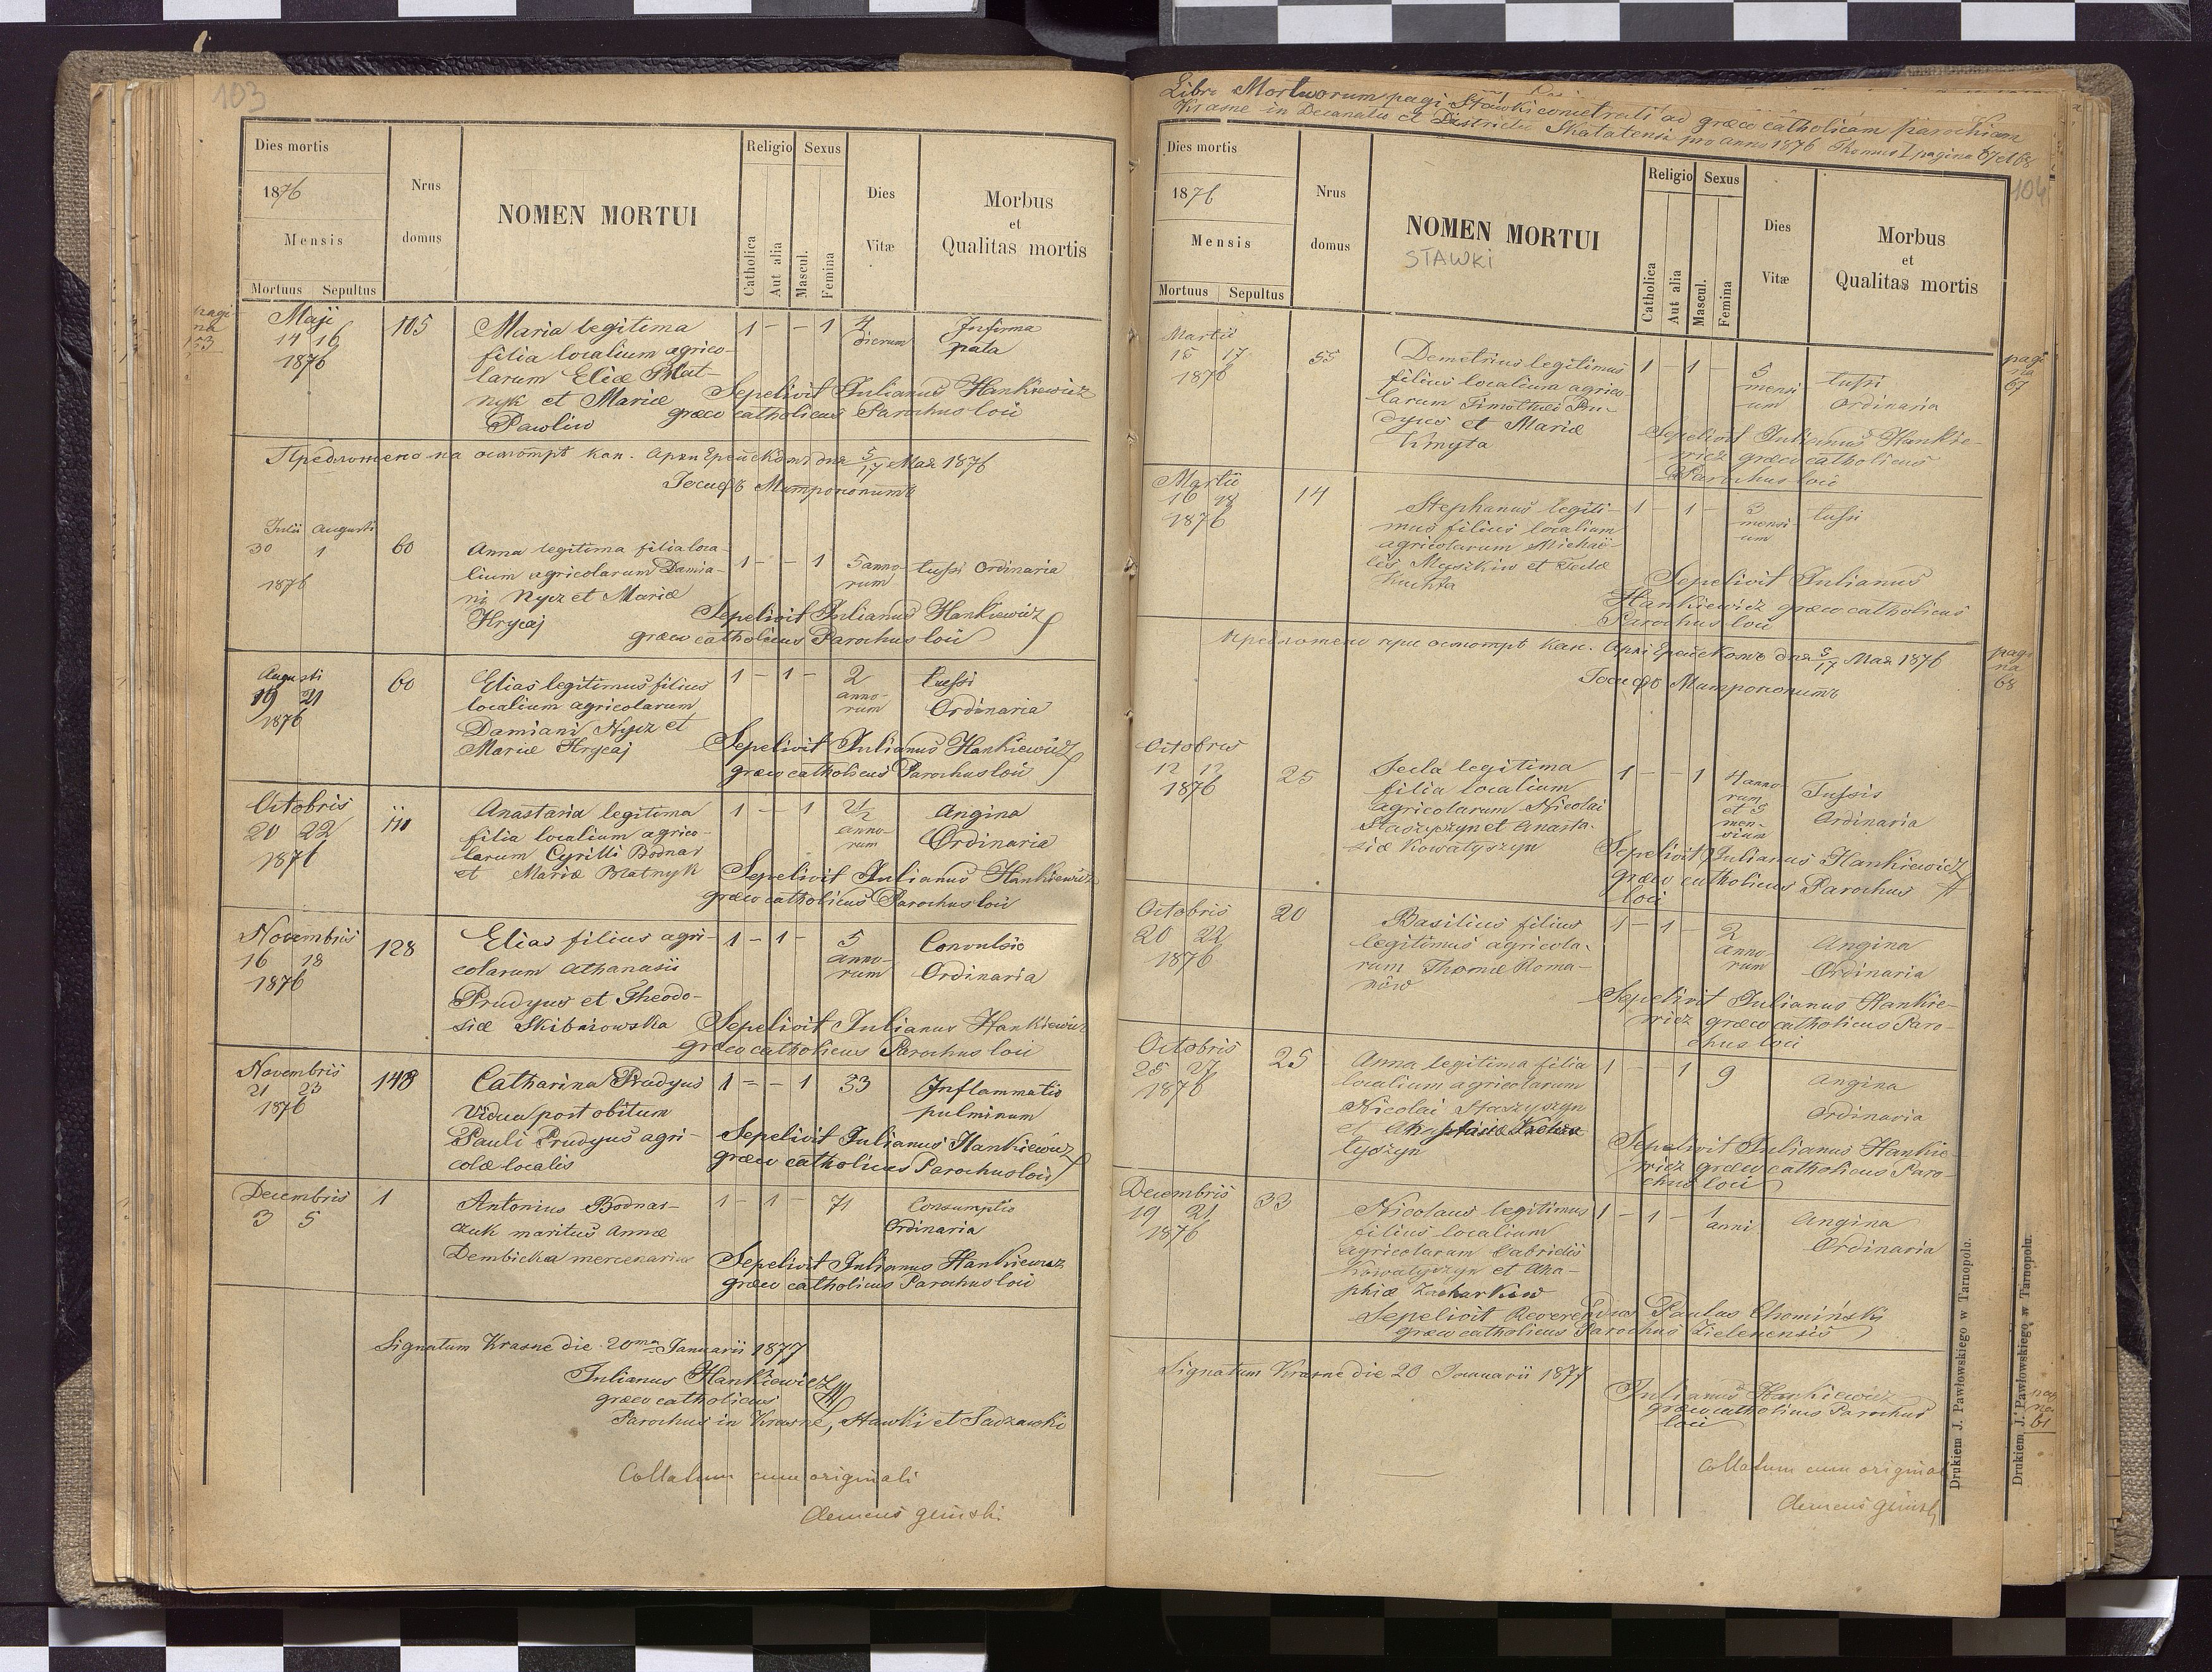 103
Dies mortis
1876
Mensis
Mortuus Sepultus
Nrus
domus
NOMEN MORTUI
Religio
Catholica
Aut alia
Sexus
Mascul.
Femina
Dies
Vitæ
Morbus
et
Qualitas mortis
pagi
na
153
Maji
14 16
1876
105
Maria legitima
filia localium agrico-
larum Eliæ Blat-
nyk et Mariæ
Pawliw
1 - - 1
4
dierum
Infirma
nata
Sepelivit Julianus Hankiewicz
græco catholicus Parochus loci
1876
Julii Augusti
30 1
1876
60
Anna legitima filia loca-
lium agricolarum Damia-
ni Nycz et Mariæ
Hrycaj
1 - - 1
5 anno-
rum
tussi Ordinaria
Sepelivit Julianus Hankiewicz
græco catholicus Parochus loci
Augusti
19 21
1876
60
Elias legitimus filius
localium agricolarum
Damiani Nycz et
Mariæ Hrycaj
1 - 1 -
2
anno-
rum
tussi
Ordinaria
Sepelivit Julianus Hankiewicz
græco catholicus Parochus loci
Octobris
20 22
1876
Anastasia legitima
filia localium agrico-
larum Cyrilli Bodnar
et Mariæ Blatnyk
1 - - 1
2½
anno-
rum
Angina
Ordinaria
Sepelivit Julianus Hankiewicz
græco catholicus Parochus loci
Novembris
16 18
1876
128
Elias filius agri-
colarum Athanasii
Prudyus et Theodo-
siæ Skibniowska
1 - 1 -
5
anno-
rum
Convulsio
Ordinaria
Sepelivit Julianus Hankiewicz
græco catholicus Parochus loci
Novembris
21 23
1876
148
Catharina Prudyus
Vidua post obitum
Pauli Prudyus agri-
colæ localis
1 - - 1
33
Inflammatio
pulminum
Sepelivit Julianus Hankiewicz
græco catholicus Parochus loci
Decembris
3 5
1
Antonius Bodnar-
czuk maritus Annæ
Dembicka mercenariæ
1 - 1 -
71
Consumptio
Ordinaria
Sepelivit Julianus Hankiewicz
græco catholicus Parochus loci
Signatum Krasne die 20ma Januarii 1877
Julianus Hankiewicz
græco catholicus
Parochus in Krasne, Stawki et Sadzawki
Collatum cum originali
Libri Mortuorum pagi Stawki cometrati ad græco catholicam parochiam
Krasne in Decanatu et Districtu Skalatensi pro anno 1876 Thomus I pagina 67 et 68
104
Dies mortis
1876
Mensis
Mortuus Sepultus
Nrus
domus
NOMEN MORTUI
STAWKI
Religio
Catholica
Aut alia
Sexus
Mascul.
Femina
Dies
Vitæ
Morbus
et
Qualitas mortis
Martii
15 17
1876
55
Demetrius legitimus
filius localium agrico-
larum Timothei Pru-
dyus et Mariæ
Kmyta
1 - 1 -
5
mensi
um
tussi
Ordinaria
Sepelivit Julianus Hankie-
wicz græco catholicus
Parochus loci
pagi
na
67
Martii
16 18
1876
14
Stephanus legiti-
mus filius localium
agricolarum Michaë-
lis Musikiw et Teclæ
Kuchta
1 - 1 -
3
mensi-
um
tussi
Sepelivit Julianus
Hankiewicz græco catholicus
Parochus loci
1876
pagi
na
68
Octobris
12 13
1876
25
Tecla legitima
filia localium
agricolarum Nicolai
Staszyszyn et Anasta-
siæ Kowalyszyn
1 - - 1
4 anno-
rum
et 5
men-
sium
Tussis
Ordinaria
Sepelivit Julianus Hankiewicz
græco catholicus Parochus
loci
Octobris
20 22
1876
20
Basilius filius
legitimus agricola-
rum Thomæ Roma-
nów
1 - 1 -
2
anno-
rum
Angina
Ordinaria
Sepelivit Julianus Hankie-
wicz græco catholicus Paro-
chus loci
Octobris
25 27
1876
25
Anna legitima filia
localium agricolarum
Nicolai Staszyszyn
lyszyn
1 - - 1
9
Angina
Ordinaria
Sepelivit Julianus Hankie
wicz græco catholicus Paro-
chus loci
Decembris
19 21
1876
33
Nicolaus legitimus
filius localium
agricolarum Gabrielis
Kowalyszyn et Aga-
phiæ Zacharkiw
1 - 1 -
1
anni
Angina
Ordinaria
Sepelivit Reverendus Paulus Chomiński
græco catholicus Parochus Zielenensis
Signatum Krasne die 20 Januarii 1877
Julianus Hankiewicz
græco catholicus Parochus
loci
Collatum cum original
Drukiem J. Pawłowskiego w Tarnopolu.
Drukiem J. Pawłowskiego w Tarnopolu.